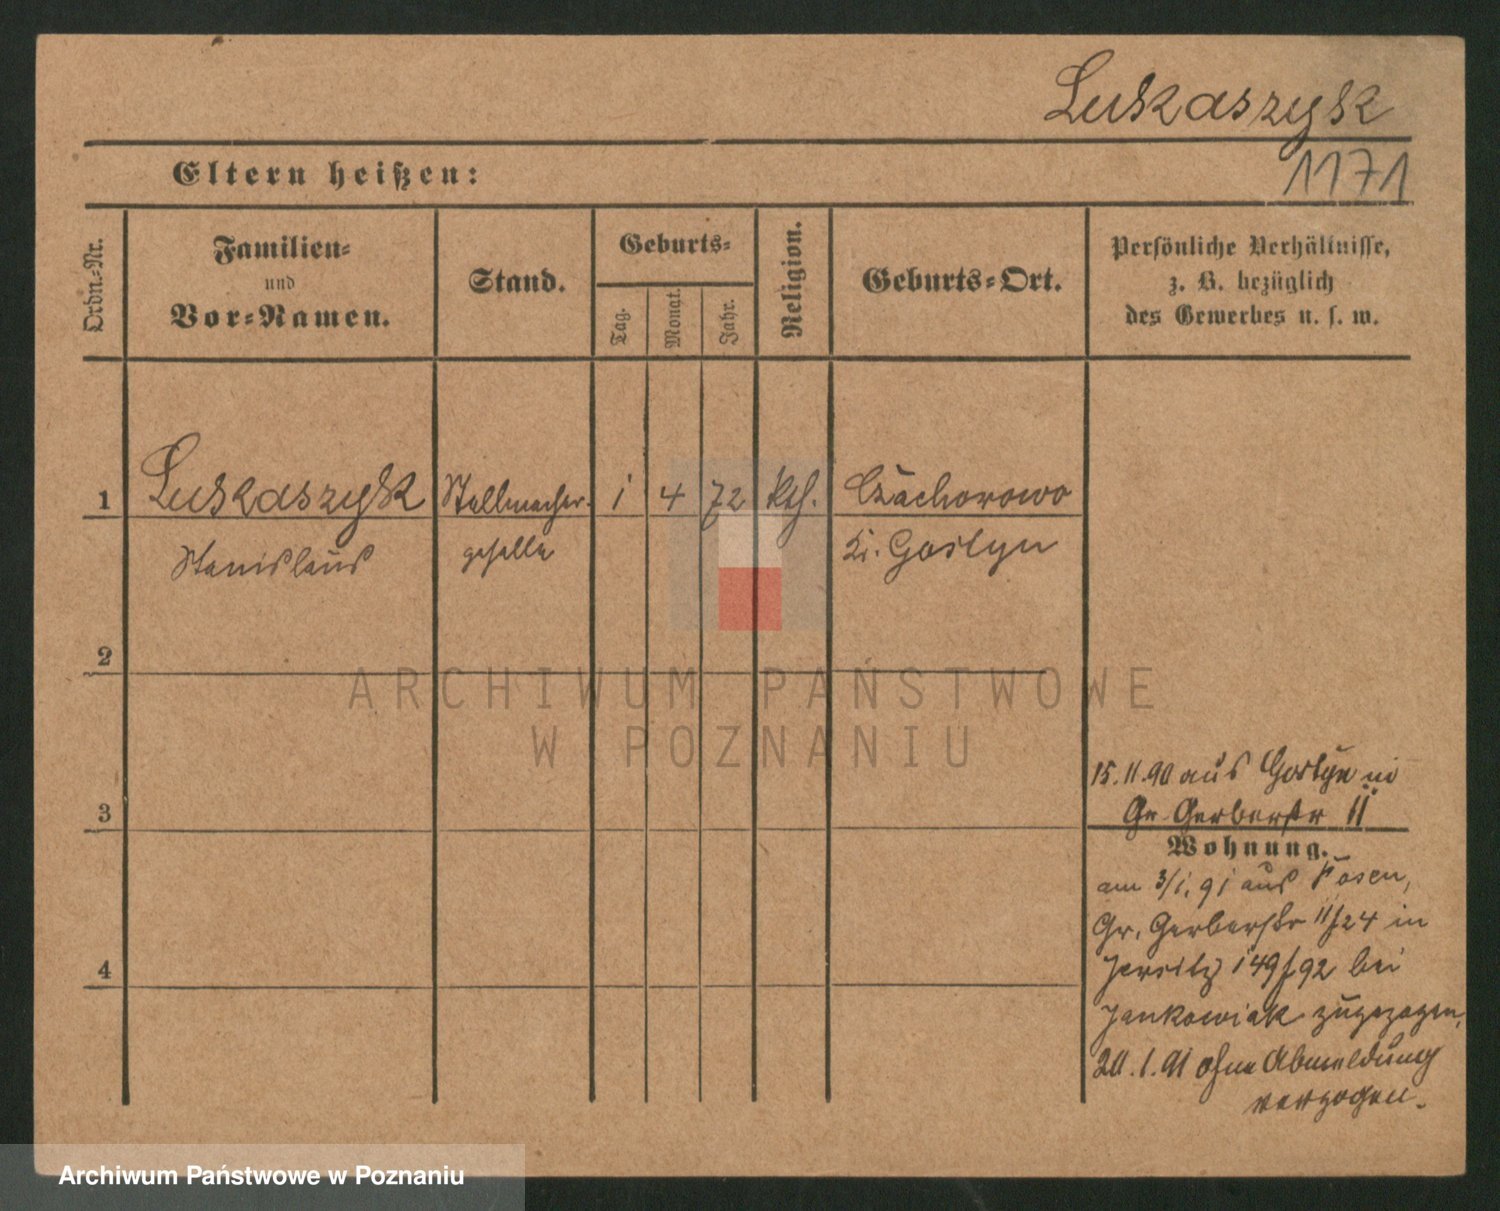 Lukaszyk
1171
Eltern heißen:
Ordn.-Nr.
Familien-
und
Vor-Namen.
Stand.
Geburts-
Tag.
Monat.
Jahr.
Religion.
Geburts-Ort.
Persönliche Verhältnisse,
z. B. bezüglich
des Gewerbes u. s. w.
1 Lukaszyk Stellmacher- 1 4 72 kth. Czachorowo
Stanislaus geselle Kr. Gostyn
2
ARCHIWUM PAŃSTWOWE
W POZNANIU
3
15.11.90 aus Gostyn in
Gr. Gerberstr 11
Wohnung.
am 3/1. 91 aus Posen,
Gr. Gerberstr 11/24 in
Jersitz 149/92 bei
4
Jankowiak zugezogen,
20.1.91 ohne Abmeldung
verzogen.
Archiwum Państwowe w Poznaniu